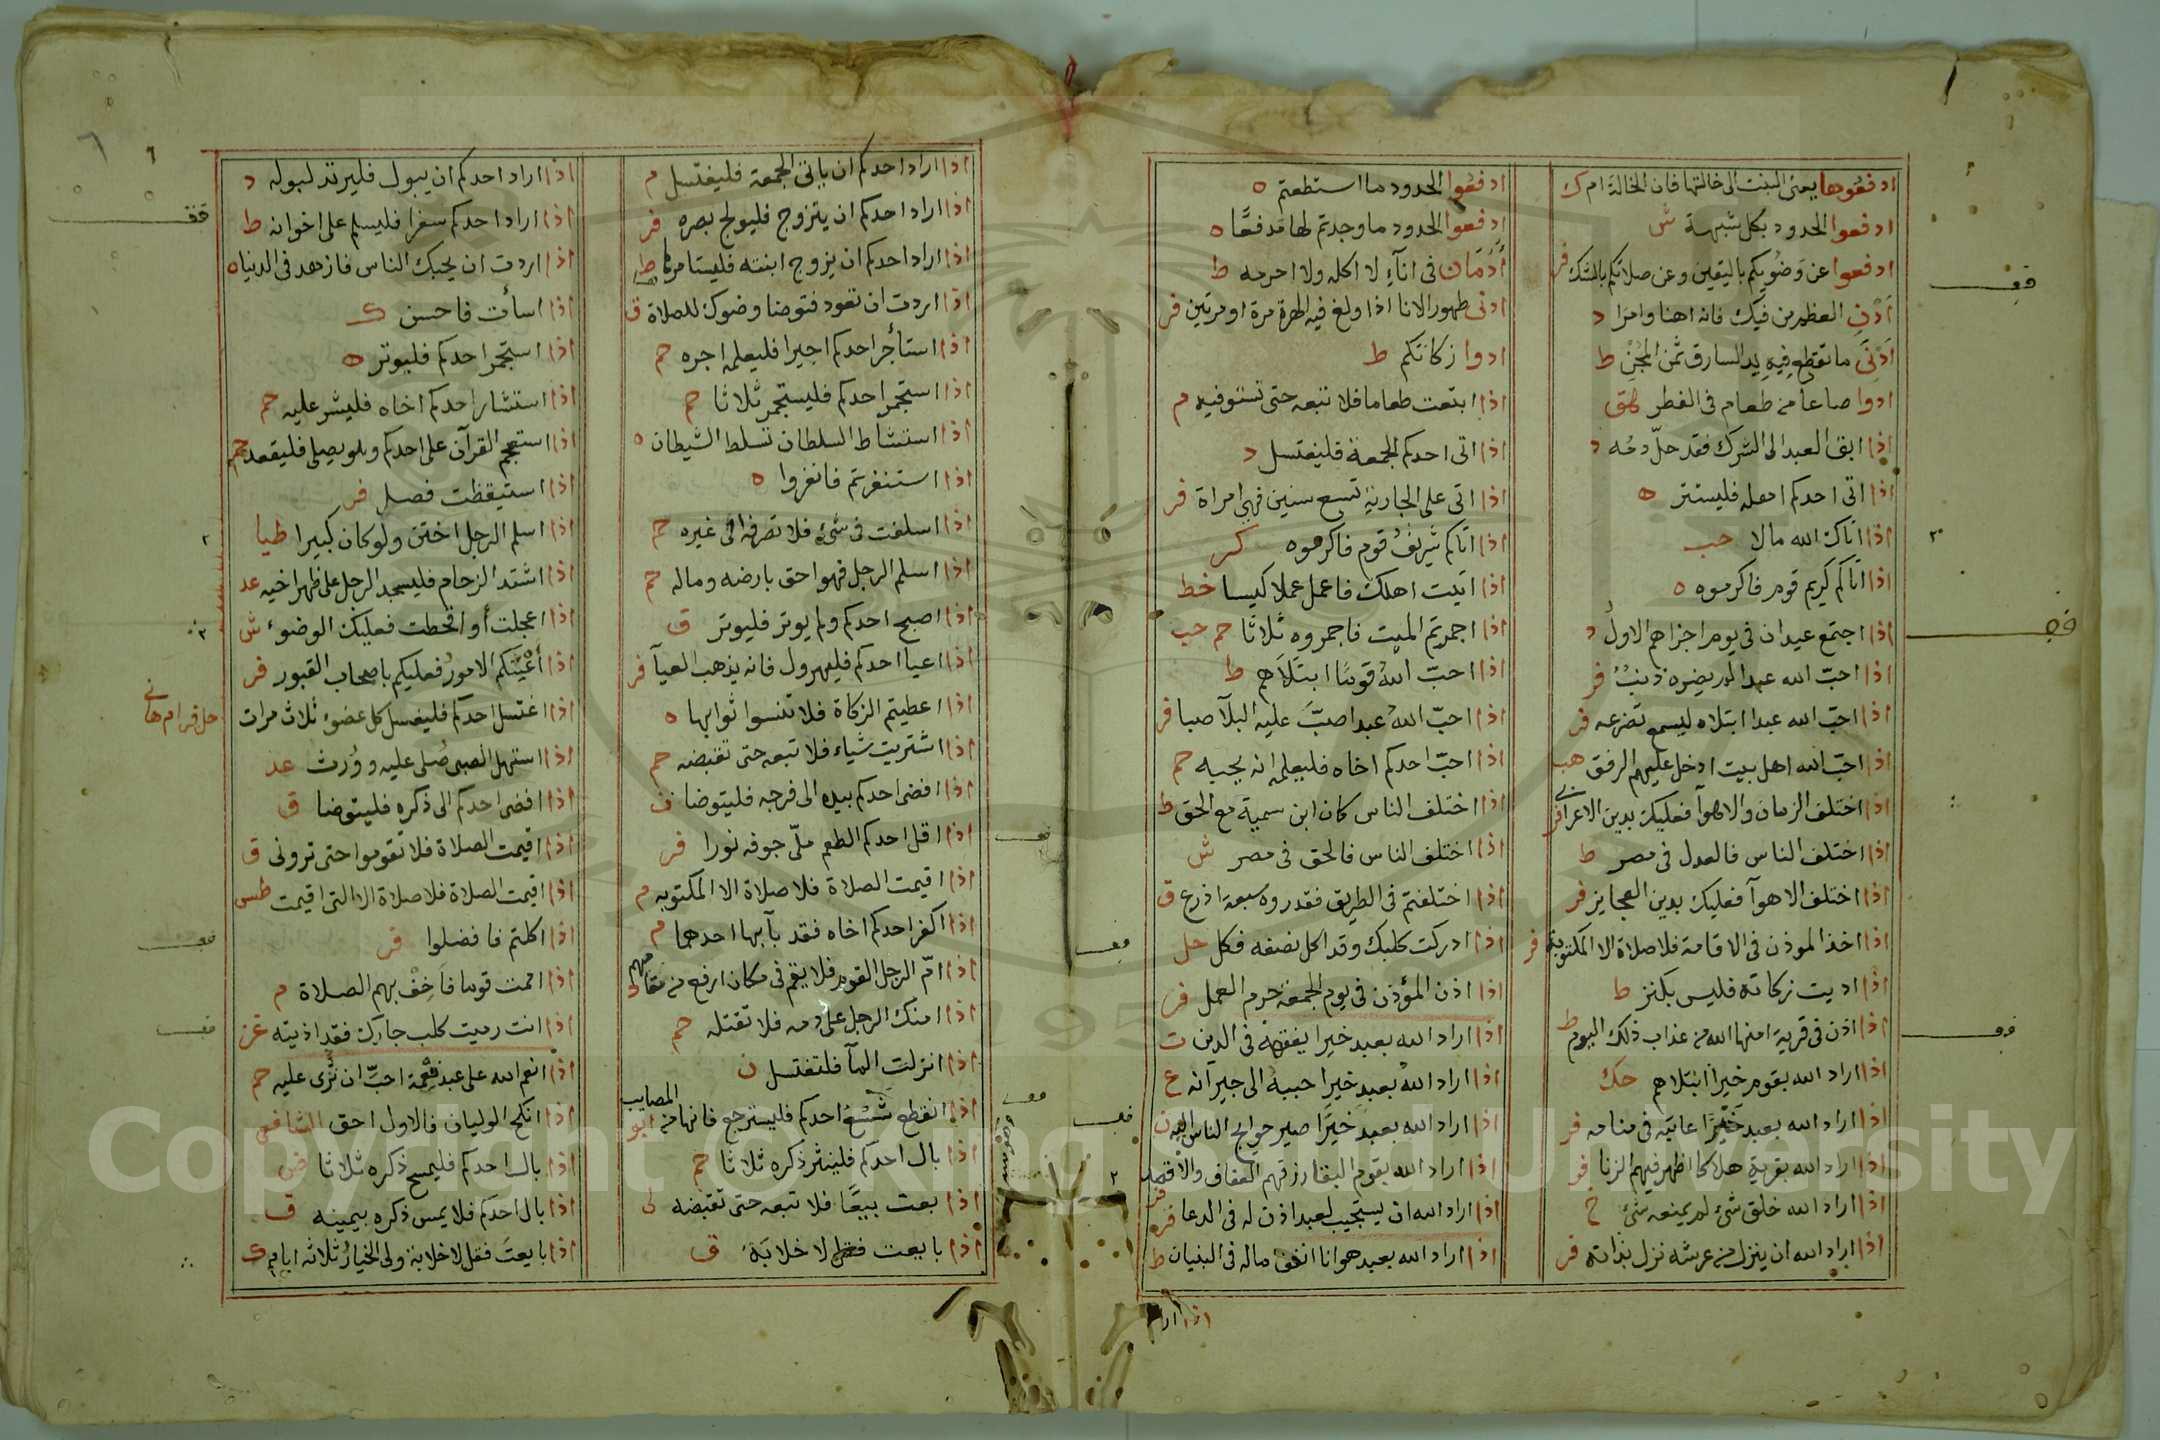 ادفعوها يعنى البنت الى خالتها فان الخالة ام ك
ادفعوا الحدود بكل شبهة ش
ادفعوا عن وضويكم باليقين وعن صلاتكم بالشك فر
ادن العظم من فيك فانه اهنا وامرا د
ادنى ما تقطع فيه يد السارق ثمن المجن ط
ادوا صاعا من طعام فى الفطر هق
اذا ابق العبد الى الشرك فقد حل دمه د
اذا اتى احدكم اهله فليستتر ه
اذا اتاك الله مالا حب
اذا اتاكم كريم قوم فاكرموه ه
اذا اجتمع عيدان فى يوم اجزاهم الاول د
اذا احب الله عبدا لم يضره ذنب فر
اذا احب الله عبدا ابتلاه ليسمع تضرعه فر
اذا احب الله اهل بيت ادخل عليهم الرفق هب
اذا اختلف الزمان والاهوآ فعليك بدين الاعرابى فر
اذا اختلف الناس فالعدل فى مصر ط
اذا اختلف الاهوآ فعليك بدين العجايز فر
اذا اخذ الموذن فى الاقامة فلا صلاة الا المكتوبة فر
اذا اديت زكاته فليس بكنز ط
اذا اذن فى قرية امنها الله من عذاب ذلك اليوم ط
اذا اراد الله بقوم خيرا ابتلاهم حك
اذا اراد الله بعبد خيرا عاتبه فى منامه فر
اذا اراد الله بقرية هلاكا اظهر فيهم الزنا فر
اذا اراد الله خلق شئ لم يمنعه شئ خ
اذا اراد الله ان ينزل من عرشه نزل بذاته فر
ادفعوا الحدود ما استطعتم ه
ادفعوا الحدود ما وجدتم لها مدفعا ه
أدمان فى انآء لا اكله ولا احرمه ط
ادنى طهور الانا اذا ولغ فيه الهرة مرة او مرتين فر
ادوا زكاتكم ط
اذا ابتعت طعاما فلا تبعه حتى تستوفيه م
اذا اتى احدكم الجمعة فليغتسل د
اذا اتى على الجارية تسع سنين فهى امراة فر
اذا اتاكم شريف قوم فاكرموه كر
اذا اتيت اهلك فاعمل عملا كيسا خط
اذا اجمرتم الميت فاجمروه ثلاثا حم حب
اذا احب الله قوما ابتلاهم ط
اذا احب الله عبدا صب عليه البلآ صبا فر
اذا احب احدكم اخاه فليعلمه انه يحبه حم
اذا اختلف الناس كان ابن سمية مع الحق ط
اذا اختلف الناس فالحق فى مصر ش
اذا اختلفتم فى الطريق فقدروه سبعة اذرع ق
اذا ادركت كلبك وقد اكل نصفه فكل حل
اذا اذن المؤذن فى يوم الجمعة حرم العمل فر
اذا اراد الله بعبد خيرا يفقهه فى الدين ت
اذا اراد الله بعبد خيرا حببه الى جيرآنه ع
اذا اراد الله بعبد خيرا صير حوايج الناس اليه ن
اذا اراد الله بقوم البقا رزقهم العفاف والاقتصاد
اذا اراد الله ان يستجيب لعبد اذن له فى الدعا فره
اذا اراد الله بعبد هوانا انفق ماله فى البنيان ط
اذا اراد
اذا اراد احدكم ان ياتى الجمعة فليغتسل م
اذا اراد احدكم ان يتزوج فليولج بصره فر
اذا اراد احدكم ان يزوج ابنته فليستامرها ط
اذا اردت ان تعود فتوضا وضوك للصلاة ق
اذا استأجر احدكم اجيرا فليعلمه اجره حم
اذا استجمر احدكم فليستجمر ثلاثا حم
اذا استشاط السلطان تسلط الشيطان ه
اذا استنفرتم فانفروا ه
اذا اسلفت فى شئ فلا تصرفه الى غيره حم
اذا اسلم الرجل فهو احق بارضه وماله حم
اذا اصبح احدكم ولم يوتر فليوتر ق
اذا اعيآ احدكم فليهرول فانه يذهب العيآ فر
اذا اعطيتم الزكاة فلا تنسوا ثوابها ه
اذا اشتريت شياء فلا تبعه حتى تقبضه حم
اذا افضى احدكم بيده الى فرجه فليتوضا
اذا اقل احدكم الطعم ملى جوفه نورا فر
اذا اقيمت الصلاة فلا صلاة الا المكتوبه م
اذا اكفر احدكم اخاه فقد بآ بها احدهما م
اذا ام الرجل القوم فلا يقم فى مكان ارفع من مقامهم د
اذا امنك الرجل على دمه فلا تقتله حم
اذا انزلت المآ فلتغتسل ن
اذا انقطع شسع احدكم فليسترجع فانها من المصايب
اذا بال احدكم فلينثر ذكره ثلاثا حم
اذا بعت بيعا فلا تبعه حتى تقبضه
اذا بايعت فقل لا خلابة ق
اذا اراد احدكم ان يبول فليرتد لبوله د
اذا اراد احدكم سفرا فليسلم على اخوانه ط
اذا اردت ان يحبك الناس فازهد فى الدنيا ه
اذا اسأت فاحسن ك
اذا استجمر احدكم فليوتر ه
اذا استشار احدكم اخاه فليشر عليه حم
اذا استعجم القرآن على احدكم وهو يصلى فليقعد حم
اذا استيقظت فصل فر
اذا اسلم الرجل اختتن ولو كان كبيرا طيا
اذا اشتد الزحام فليسجد الرجل على ظهر اخيه عد
اذا اعجلت أو اقحطت فعليك الوضوء ش
اذا أعيتكم الامور فعليكم باصحاب القبور فر
اذا اغتسل احدكم فليغسل كل عضو ثلاث مرات
اذا استهل الصبى صلى عليه وورث عد
اذا افضى احدكم الى ذكره فليتوضا ق
اذا اقيمت الصلاة فلا تقوموا حتى ترونى ق
اذا اقيمت الصلاة فلا صلاة الا التى اقيمت طس
اذا اكلتم فافضلوا فر
اذا اممت قوما فاخف بهم الصلاة م
اذا انت رميت كلب جارك فقد اذيته عر
اذا انعم الله على عبد نعمة احب ان ترى عليه حم
اذا انكح الوليان فالاول احق الشافعى
اذا بال احدكم فليمسح ذكره ثلاثا ض
اذا بال احدكم فلا يمس ذكره بيمينه ق
اذا بايعت فقل لا خلابة ولى الخيار ثلاثه ايام ك
Copyright © King Saud University